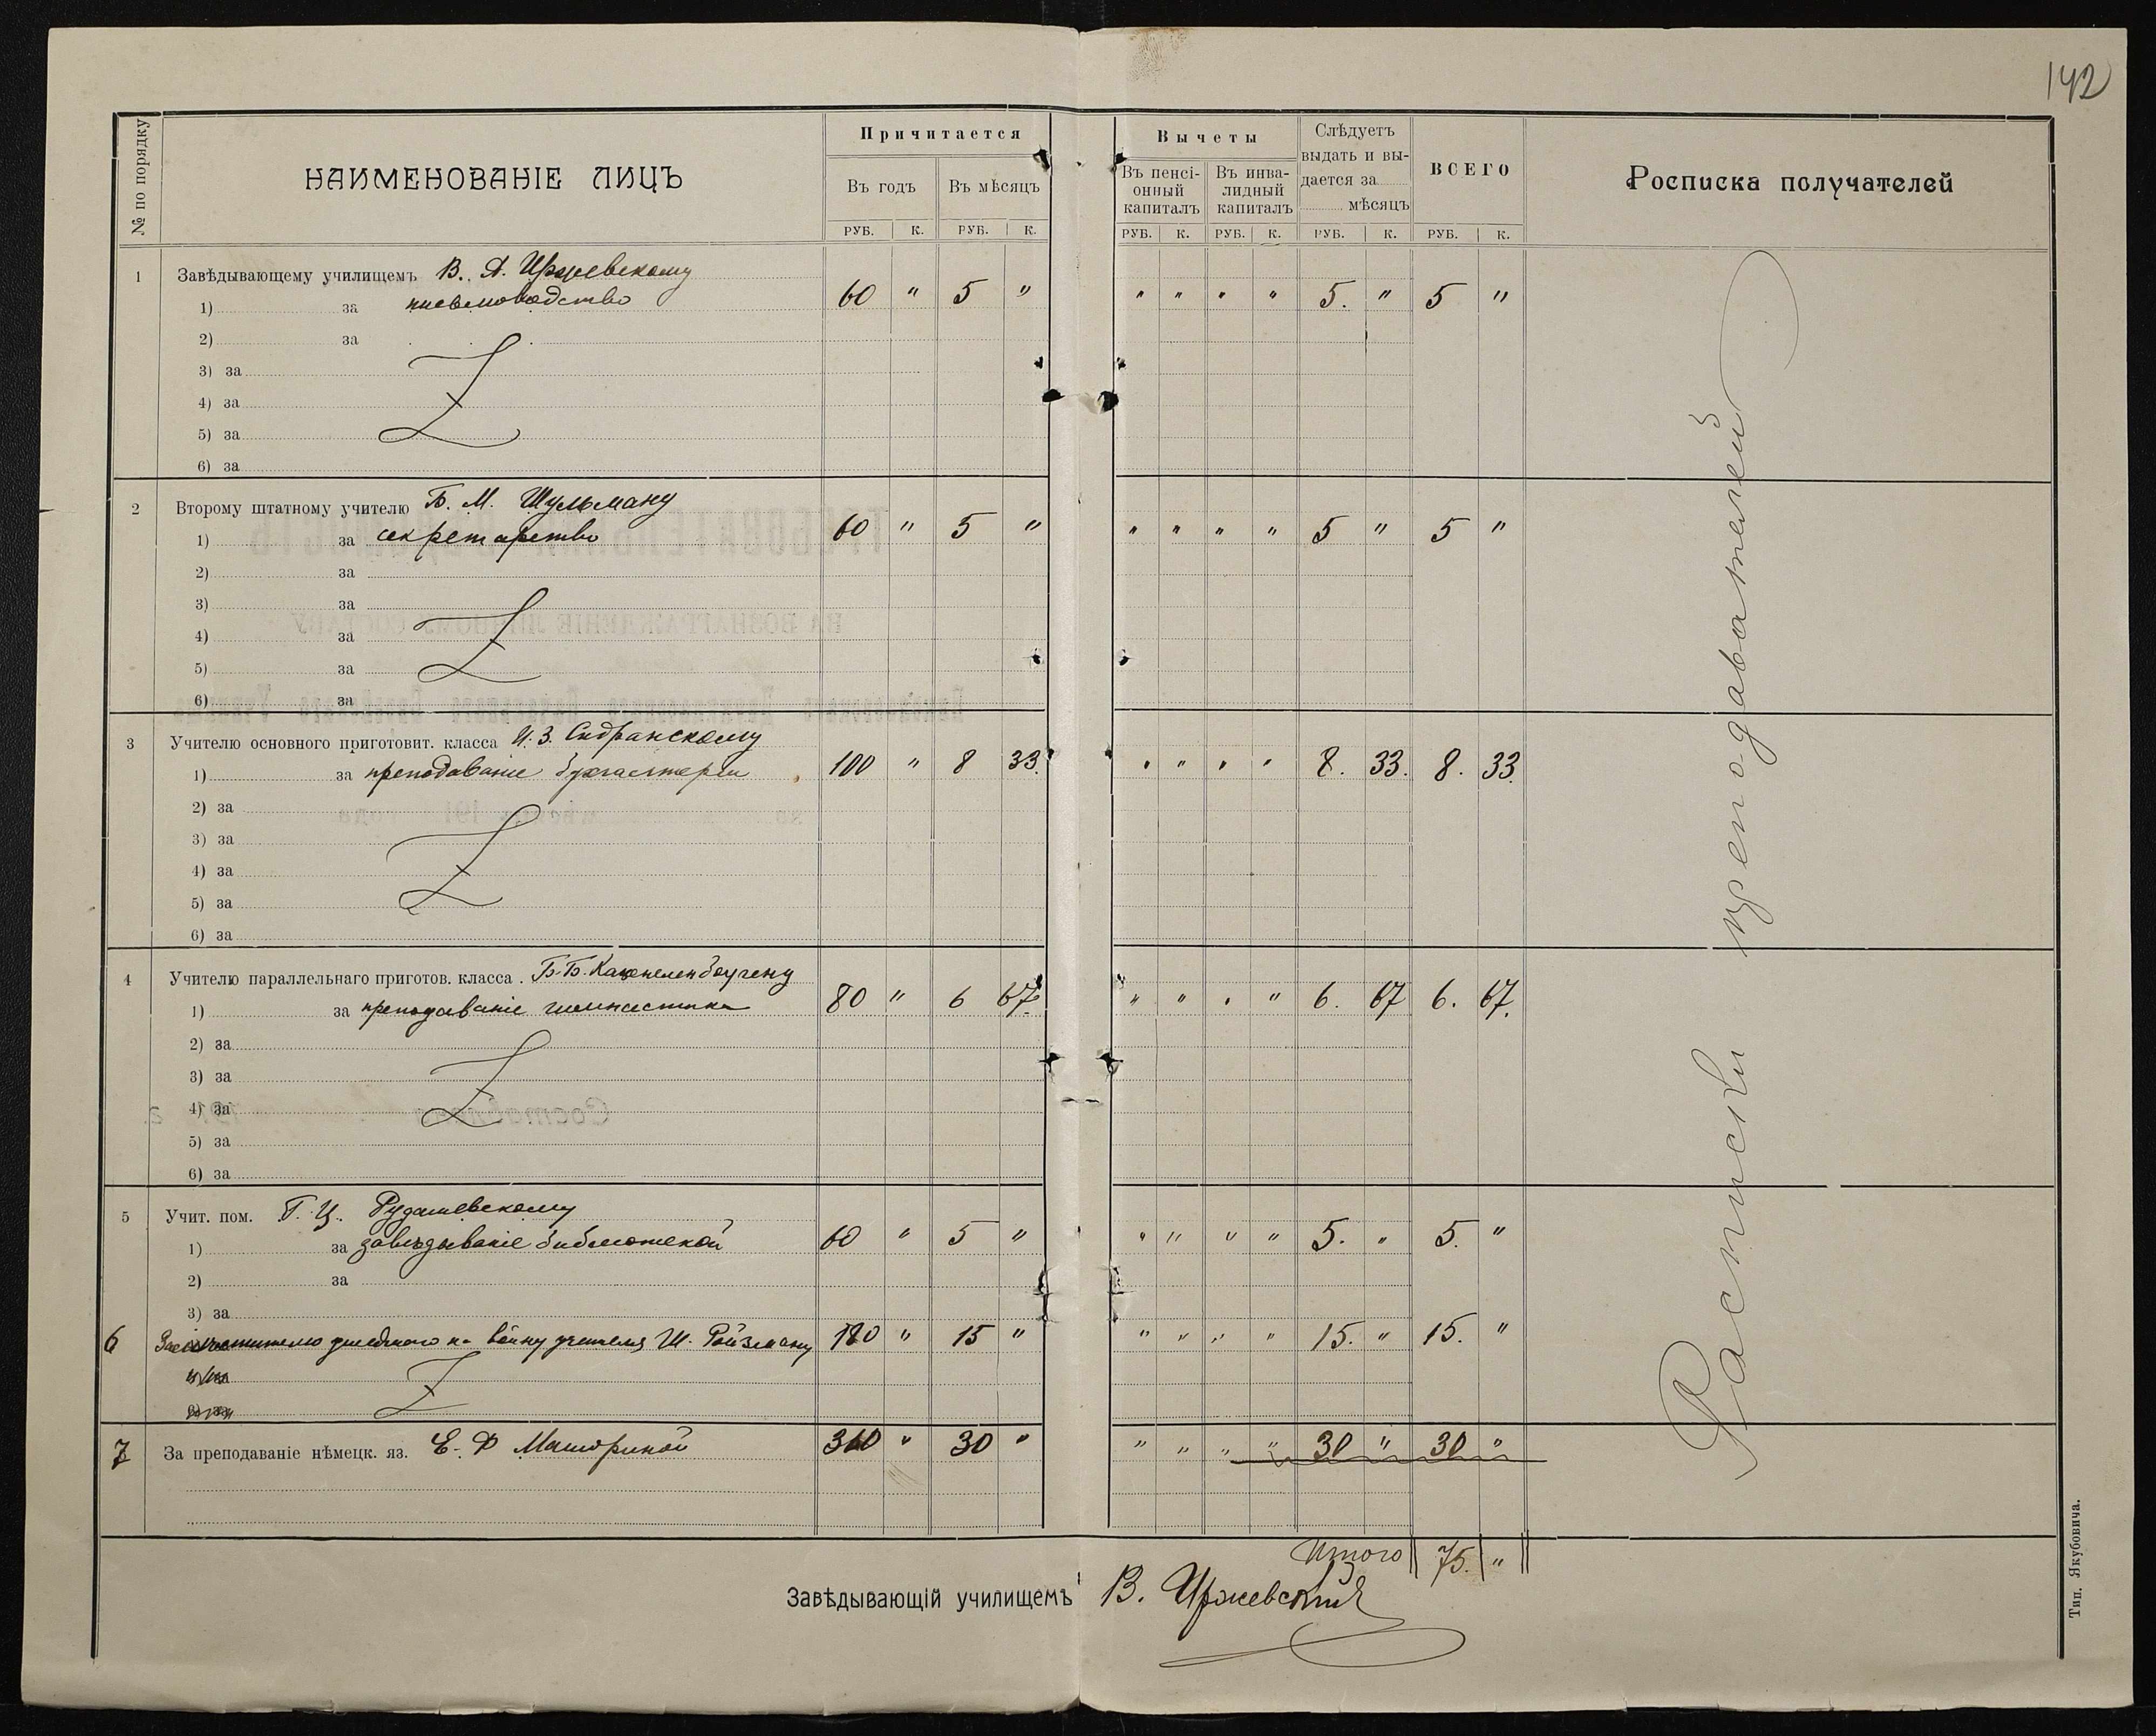 142
№ по порядку
НАИМЕНОВАНІЕ ЛИЦЪ
Причитается
Въ годъ
Въ мѣсяцъ
РУБ. К. РУБ. К.
Вычеты
Въ пенсі-
онный
капиталъ
Въ инва-
лидный
капиталъ
Слѣдуетъ
выдать и вы-
дается за
мѣсяцъ
ВСЕГО
Росписка получателей
РУБ. К. РУБ. К. РУБ. К. РУБ. К.
1 Завѣдывающему училищемъ В. А. Иржевскому
1) за письмоводство 60 " 5 " " " " " 5. " 5 "
2) за
3) за
4) за
5) за
6) за
2 Второму штатному учителю Б. М. Шульману
1) за секретарство 60 " 5 " " " " " 5 " 5 "
2) за
3) за
4) за
5) за
6) за
3 Учителю основного приготовит. класса И. З. Сидранскому
1) за преподаваніе бухгалтеріи 100 " 8 33. " " " " 8. 33. 8. 33.
2) за
3) за
4) за
5) за
6) за
4 Учителю параллельнаго приготов. класса . Б. Б. Каценеленбоугену
1) за преподаваніе гимнастики 80 " 6 67. " " " " 6. 67 6. 67.
2) за
3) за
4) за
5) за
6) за
5 Учит. пом. Г. Ц. Рудашевскому
1) за завѣдываніе библіотекой 60 " 5 " " " " " 5. " 5. "
2) за
3) за
6 ушедшаго на войну учителя Ш. Ройзману 180 " 15 " " " " " 15. " 15. "
7 За преподаваніе нѣмецк. яз. Е. Ф 360 " 30 " " " " " 30 " 30 "
Росписки преподавателей
Итого 75. "
Завѣдывающій училищемъ В. Иржевскій
Тип. Якубовича.